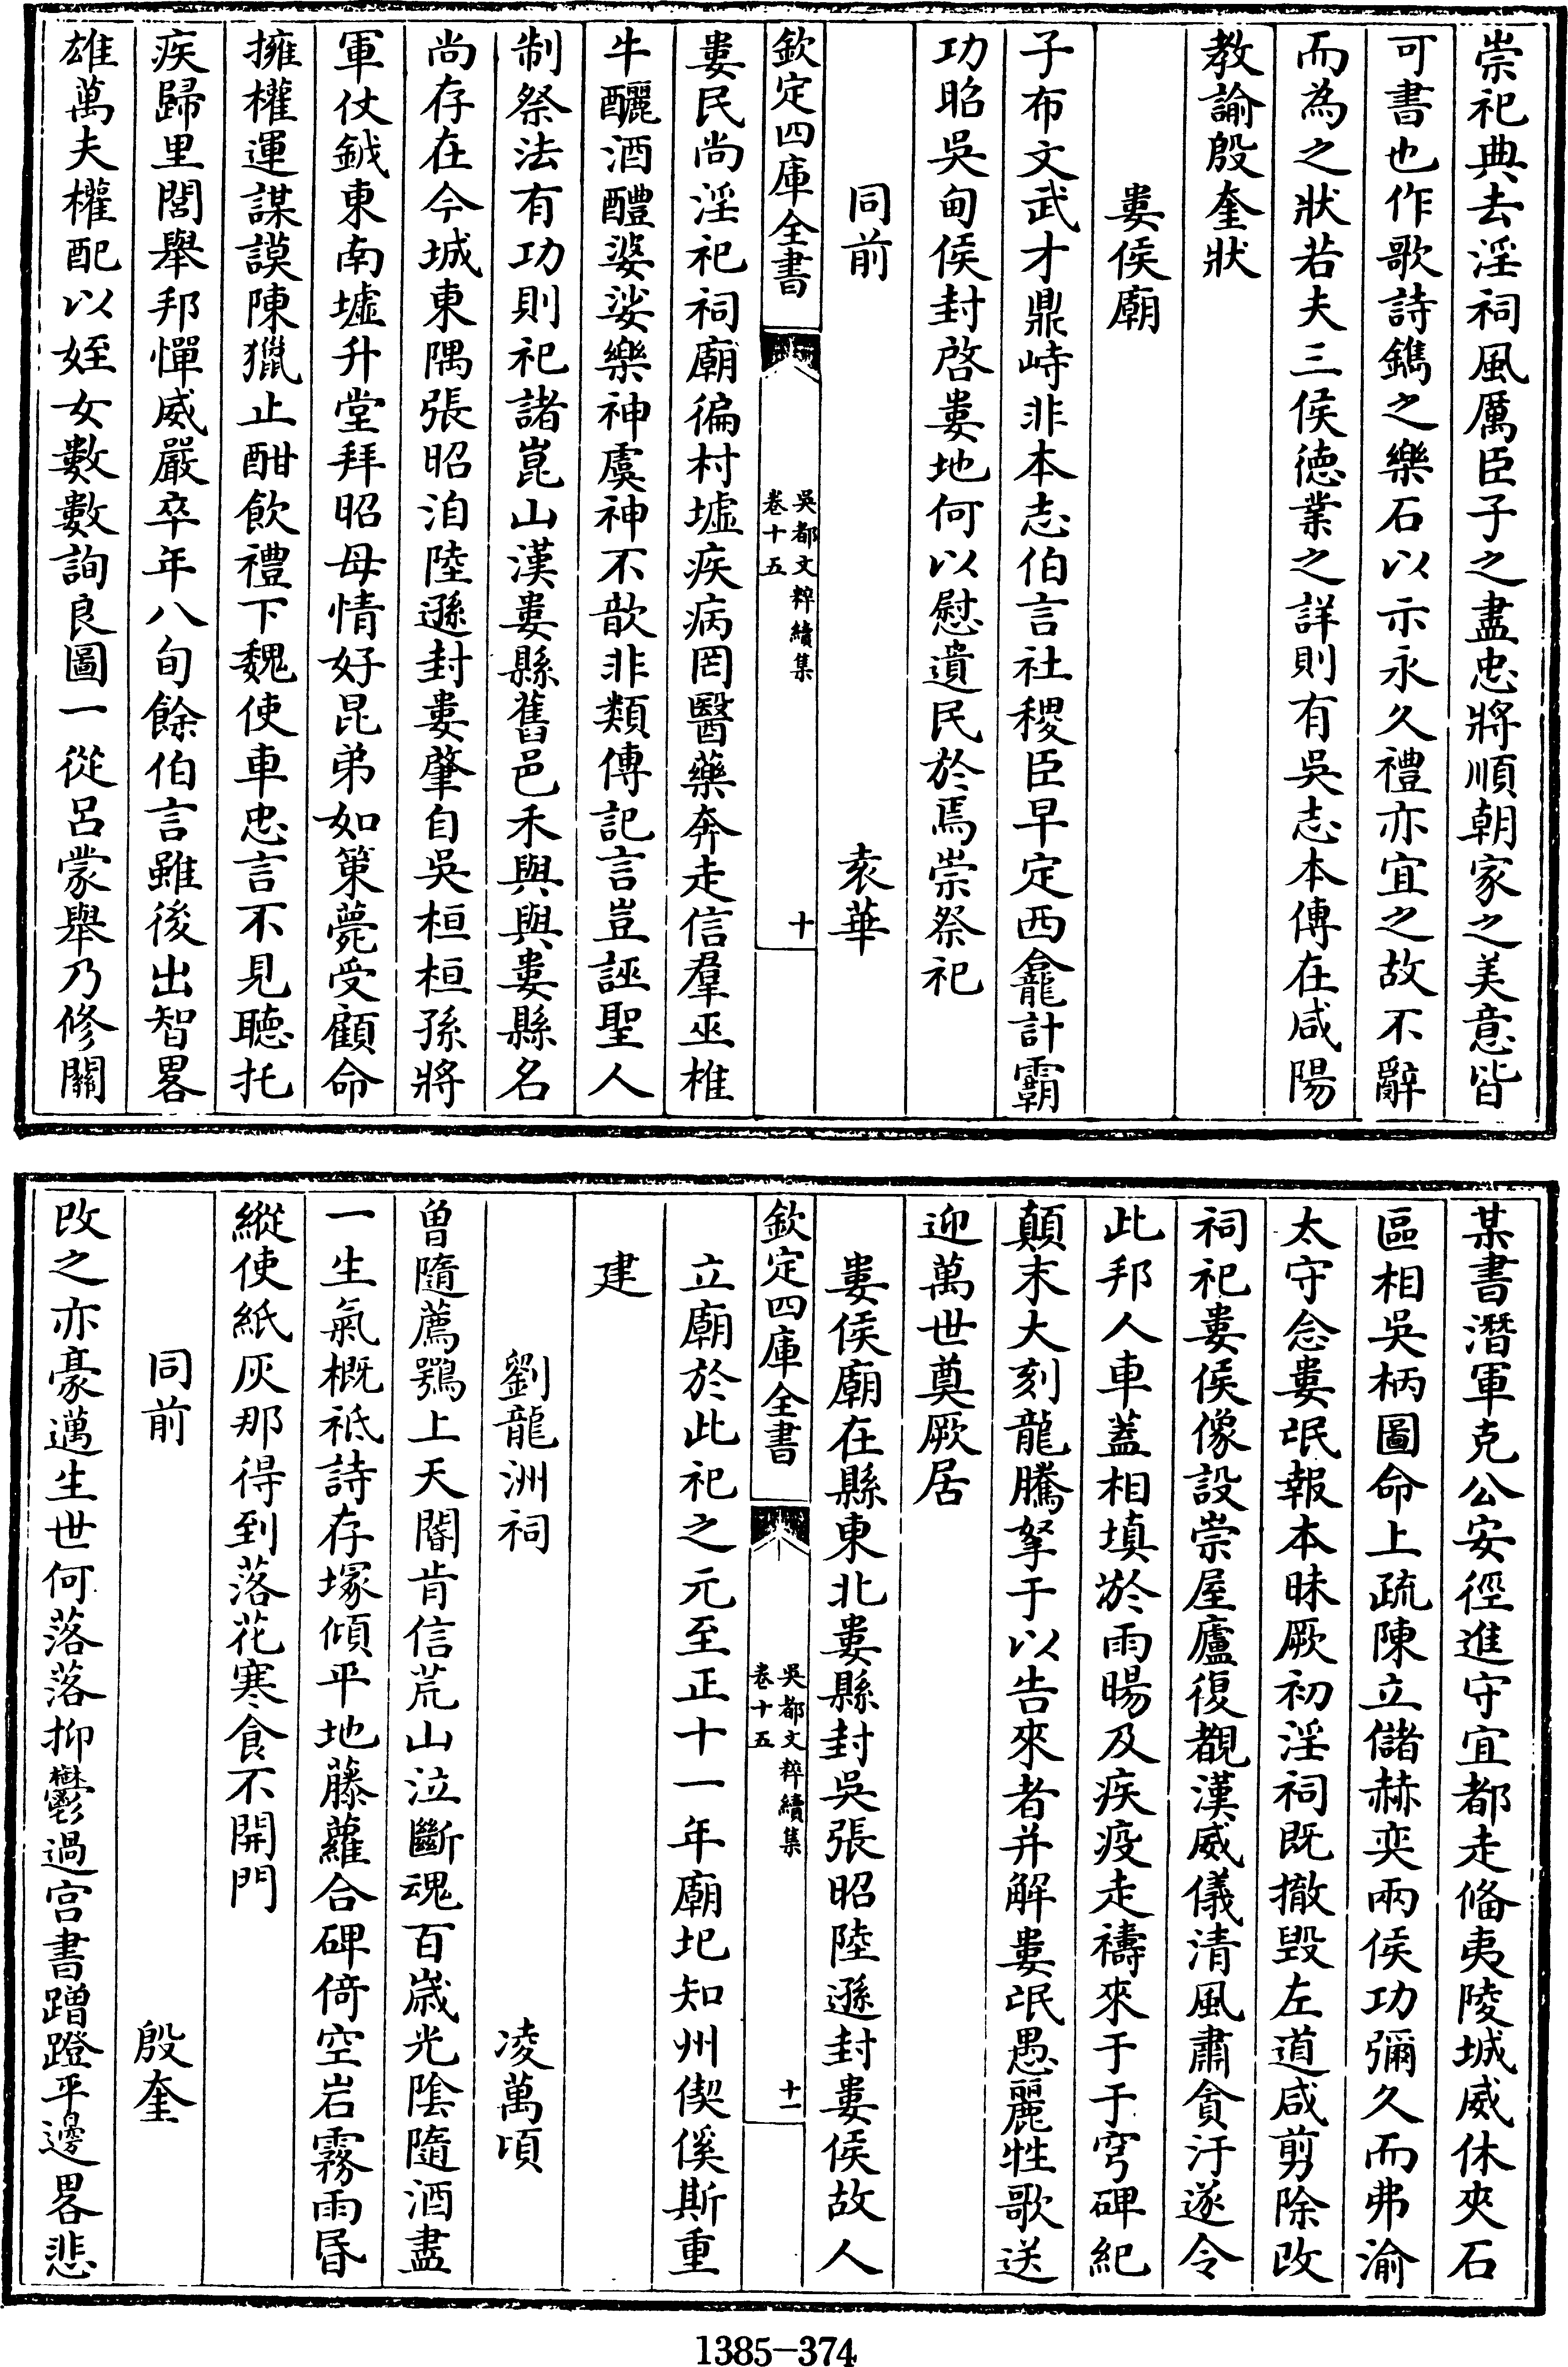 崇祀典去淫祠風厲臣子之盡忠將順朝家之美意皆
可書也作歌詩鐫之樂石以示永久禮亦宜之故不辭
而為之狀若夫三侯徳業之詳則有吳志本傳在咸陽
教諭殷奎狀
婁侯廟
子布文武才鼎峙非本志伯言社稷臣早定西龕計霸
功昭吳甸侯封啓婁地何以慰遺民於焉崇祭祀
同前 袁華
欽定四庫全書 吳都文粹續集 卷十五 十
婁民尚淫祀祠廟徧村墟疾病罔醫藥奔走信羣巫椎
牛釃酒醴婆娑樂神虞神不歆非類傳記言豈誣聖人
制祭法有功則祀諸崑山漢婁縣舊邑禾與與婁縣名
尚存在今城東隅張昭洎陸遜封婁肇自吳桓桓孫將
軍仗鉞東南墟升堂拜昭母情好昆弟如策薨受顧命
擁權運謀謨陳獵止酣飲禮下魏使車忠言不見聽托
疾歸里閭舉邦憚威嚴卒年八旬餘伯言雖後出智畧
雄萬夫權配以姪女數數詢良圖一從呂蒙舉乃修關
某書潛軍克公安徑進守宜都走俻夷陵城威休夾石
區相吳柄圖命上疏陳立儲赫奕兩侯功彌久而弗渝
太守念婁氓報本昧厥初淫祠既撤毀左道咸剪除改
祠祀婁侯像設崇屋廬復覩漢威儀清風肅貪汙遂令
此邦人車蓋相填於雨暘及疾疫走禱來于于穹碑紀
顛末大刻龍騰拏于以告來者并解婁氓愚麗牲歌送
迎萬世奠厥居
婁侯廟在縣東北婁縣封吳張昭陸遜封婁侯故人
欽定四庫全書 吳都文粹續集 卷十五 十一
立廟於此祀之元至正十一年廟圮知州偰傒斯重
建
劉龍洲祠 凌萬頃
曽隨薦鶚上天閽肯信荒山泣斷魂百嵗光陰隨酒盡
一生氣概祗詩存塚傾平地藤蘿合碑倚空岩霧雨昏
縱使紙灰那得到落花寒食不開門
同前 殷奎
改之亦豪邁生世何落落抑鬱過宫書蹭蹬平邊畧悲
1385-374